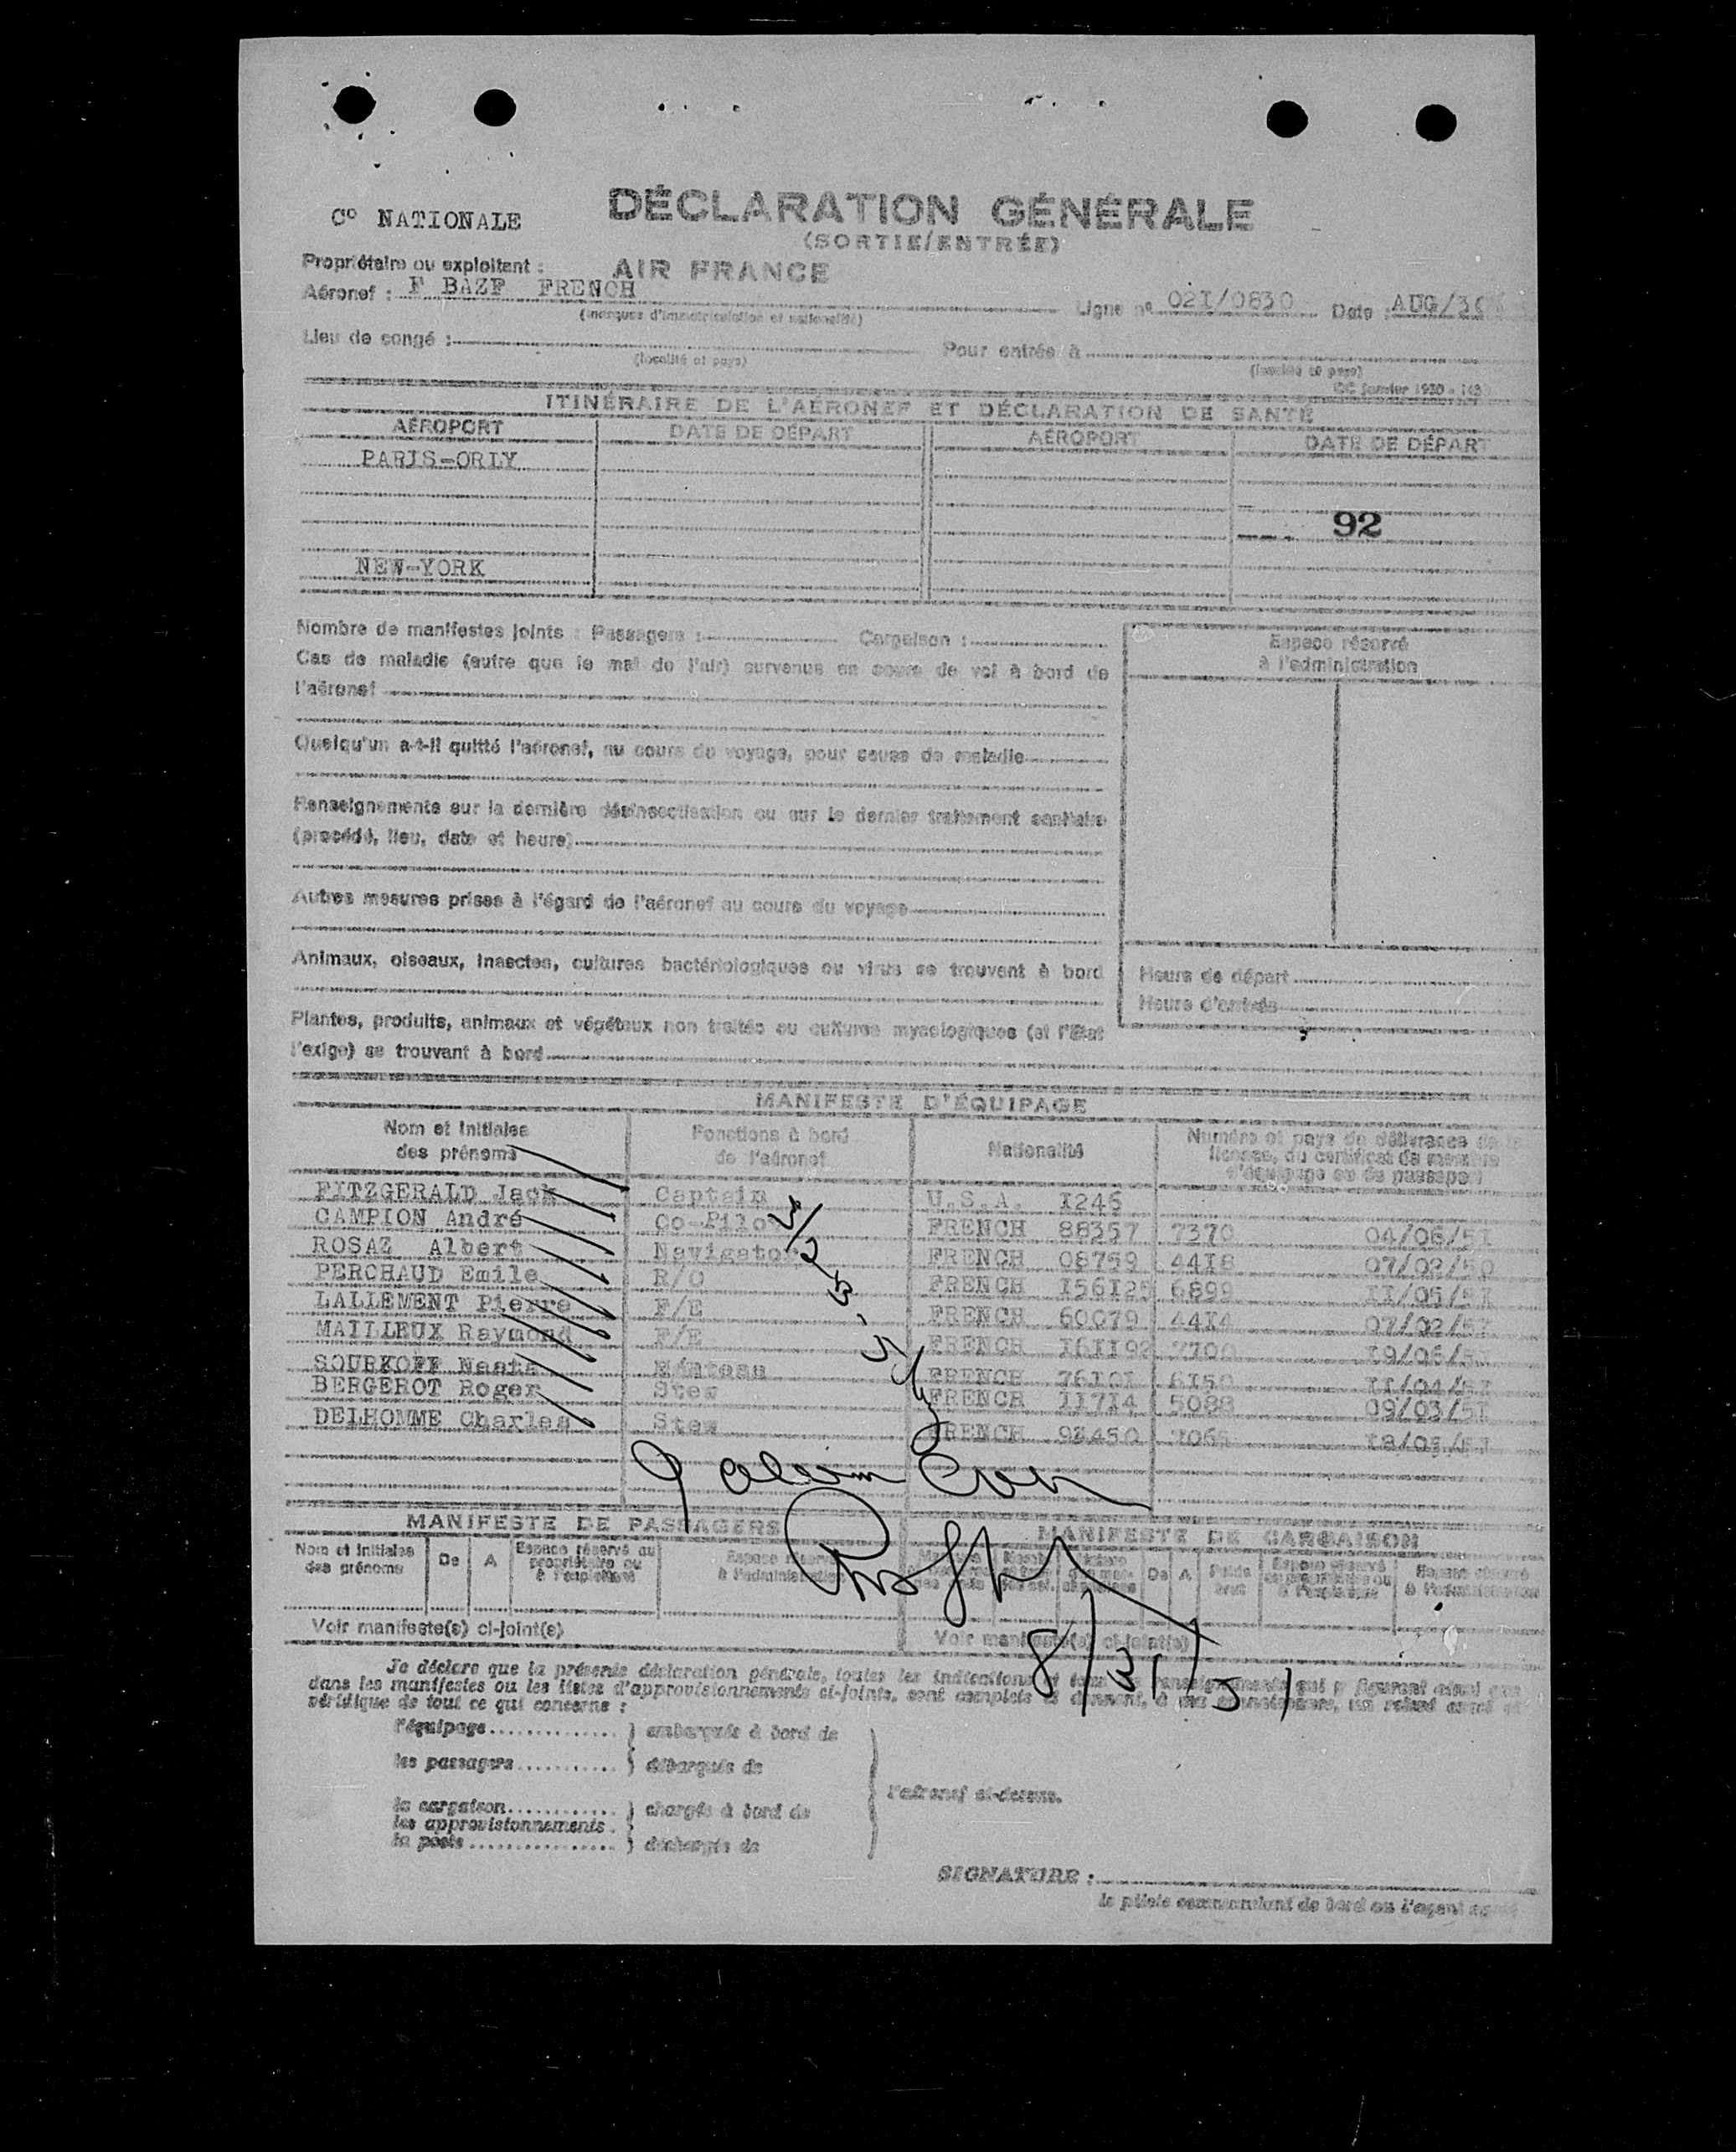 C° NATIONALE
DÉCLARATION GÉNÉRALE
(SORTIE/ENTRÉE)
Propriétaire ou exploitant : AIR FRANCE
Aéronef : F BAZF FRENCH
(marques d'immatriculation et nationalité)
Ligne n° 02I/0830 Date AUG/30
Lieu de congé :
(localité et pays)
Pour entrée à
(localité et pays)
ITINÉRAIRE DE L'AÉRONEF ET DÉCLARATION DE SANTÉ
AÉROPORT DATE DE DÉPART AÉROPORT DATE DE DÉPART
PARIS-ORLY
92
NEW-YORK
Nombre de manifestes joints : Passagers : Cargaison :
Espace réservé
à l'administration
Cas de maladie (autre que le mal de l'air) survenus en cours de vol à bord de
l'aéronef
Quelqu'un a-t-il quitté l'aéronef, au cours du voyage, pour cause de maladie
Renseignements sur la dernière désinsectisation ou sur le dernier traitement sanitaire
(procédé, lieu, date et heure)
Autres mesures prises à l'égard de l'aéronef au cours du voyage
Animaux, oiseaux, insectes, cultures bactériologiques ou virus se trouvant à bord
Heure de départ
Heure d'entrée
Plantes, produits, animaux et végétaux non traités ou cultures mycologiques (si l'État
l'exige) se trouvant à bord
MANIFESTE D'ÉQUIPAGE
Nom et initiales
des prénoms
Fonctions à bord
de l'aéronef
Nationalité
Numéro et pays de délivrance de
licence, du certificat de membre
d'équipage ou de passeport
FITZGERALD Jack Captain U.S.A. I246
CAMPION André Co-Pilot FRENCH 88357 7370 04/06/5I
ROSAZ Albert Navigator FRENCH 08759 44I8 07/02/50
PERCHAUD Emile R/O FRENCH I56I25 6899 II/05/5I
LALLEMENT Pierre F/E FRENCH 60079 44I4 07/02/5I
MAILLEUX Raymond F/E FRENCH I6II92 I9/06/5I
SOURKOFF FRENCH 76I0I 6I50 II/04/5I
BERGEROT Roger Stew FRENCH II7I4 5088 09/03/5I
DELHOMME Charles Stew FRENCH 9I450 I8/05/5I
MANIFESTE DE PASSAGERS
MANIFESTE DE CARGAISON
Nom et initiales
des prénoms
De A
Espace réservé au
propriétaire ou
à l'exploitant
Espace réservé
à l'administration
De A
Poids
brut
Espace réservé
à l'administration
Voir manifeste(s) ci-joint(s)
Voir manifeste(s) ci-joint(s)
8/31/51
Je déclare que la présente déclaration générale, toutes les indications et tous les renseignements qui y figurent ainsi que
dans les manifestes ou les listes d'approvisionnements ci-joints, sont complets et donnent, à ma connaissance, un relevé exact et
véridique de tout ce qui concerne :
l'équipage } embarqués à bord de
les passagers } débarqués de
l'aéronef ci-dessus.
la cargaison } chargés à bord de
les approvisionnements
la poste } déchargés de
SIGNATURE :
le pilote commandant de bord ou l'agent